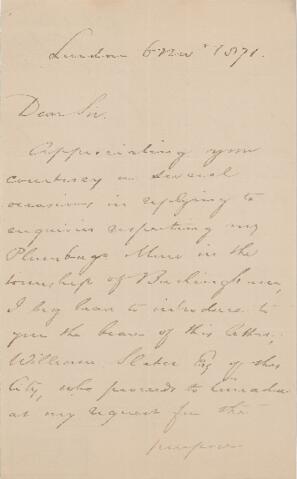 London 6 Novr 1871.
Dear Sir.
Appreciating your
courtesy on several
occasions in replying to
enquiries respecting my
Plumbago Mine in the
township of Buckingham,
I beg leave to introduce to
you the bearer of this letter,
William Slater Esq of this
City, who proceeds to Canada
at my request for the
purpose